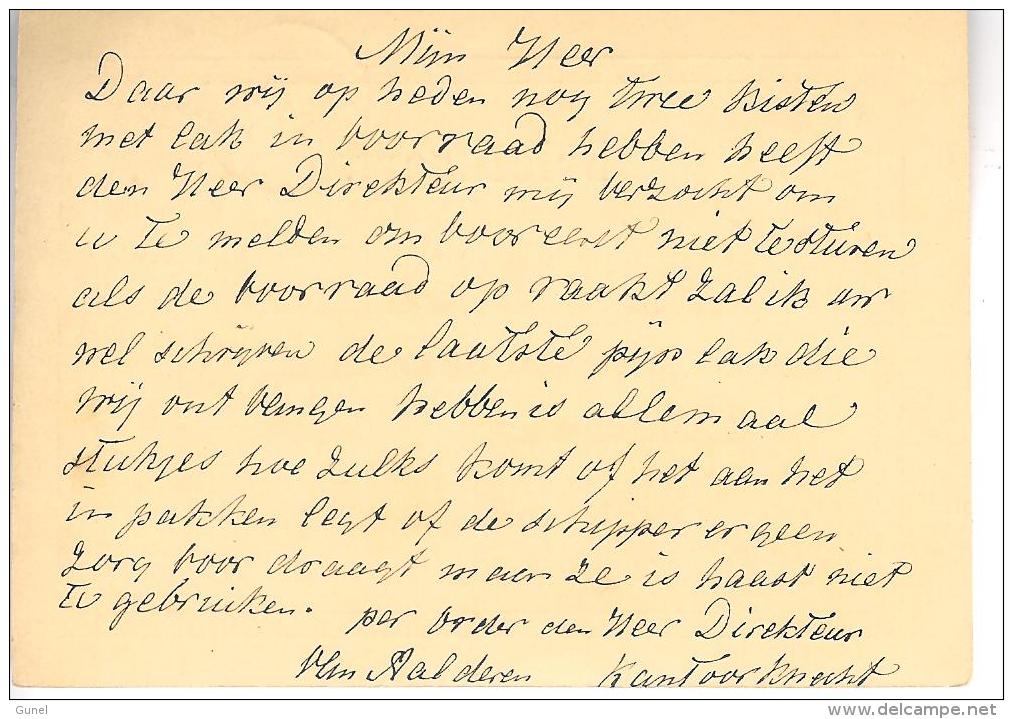 Mijn Heer
Daar wij op heden nog twee kisten
met lak in voorraad hebben heeft
den Heer Direkteur mij verzocht om
u te melden om vooreerst niet te sturen
als de voorraad op raakt zal ik uw
wel schrijven de laatste pijp lak die
wij ont vangen hebben is allemaal
stukjes hoe zulks komt of het aan het
in pakken legt of de schipper er geen
zorg voor draagt maar ze is haast niet
te gebruiken.
per order den Heer Direkteur
van Aalderen Kantoor Knecht
www.delcampe.net
Gunel